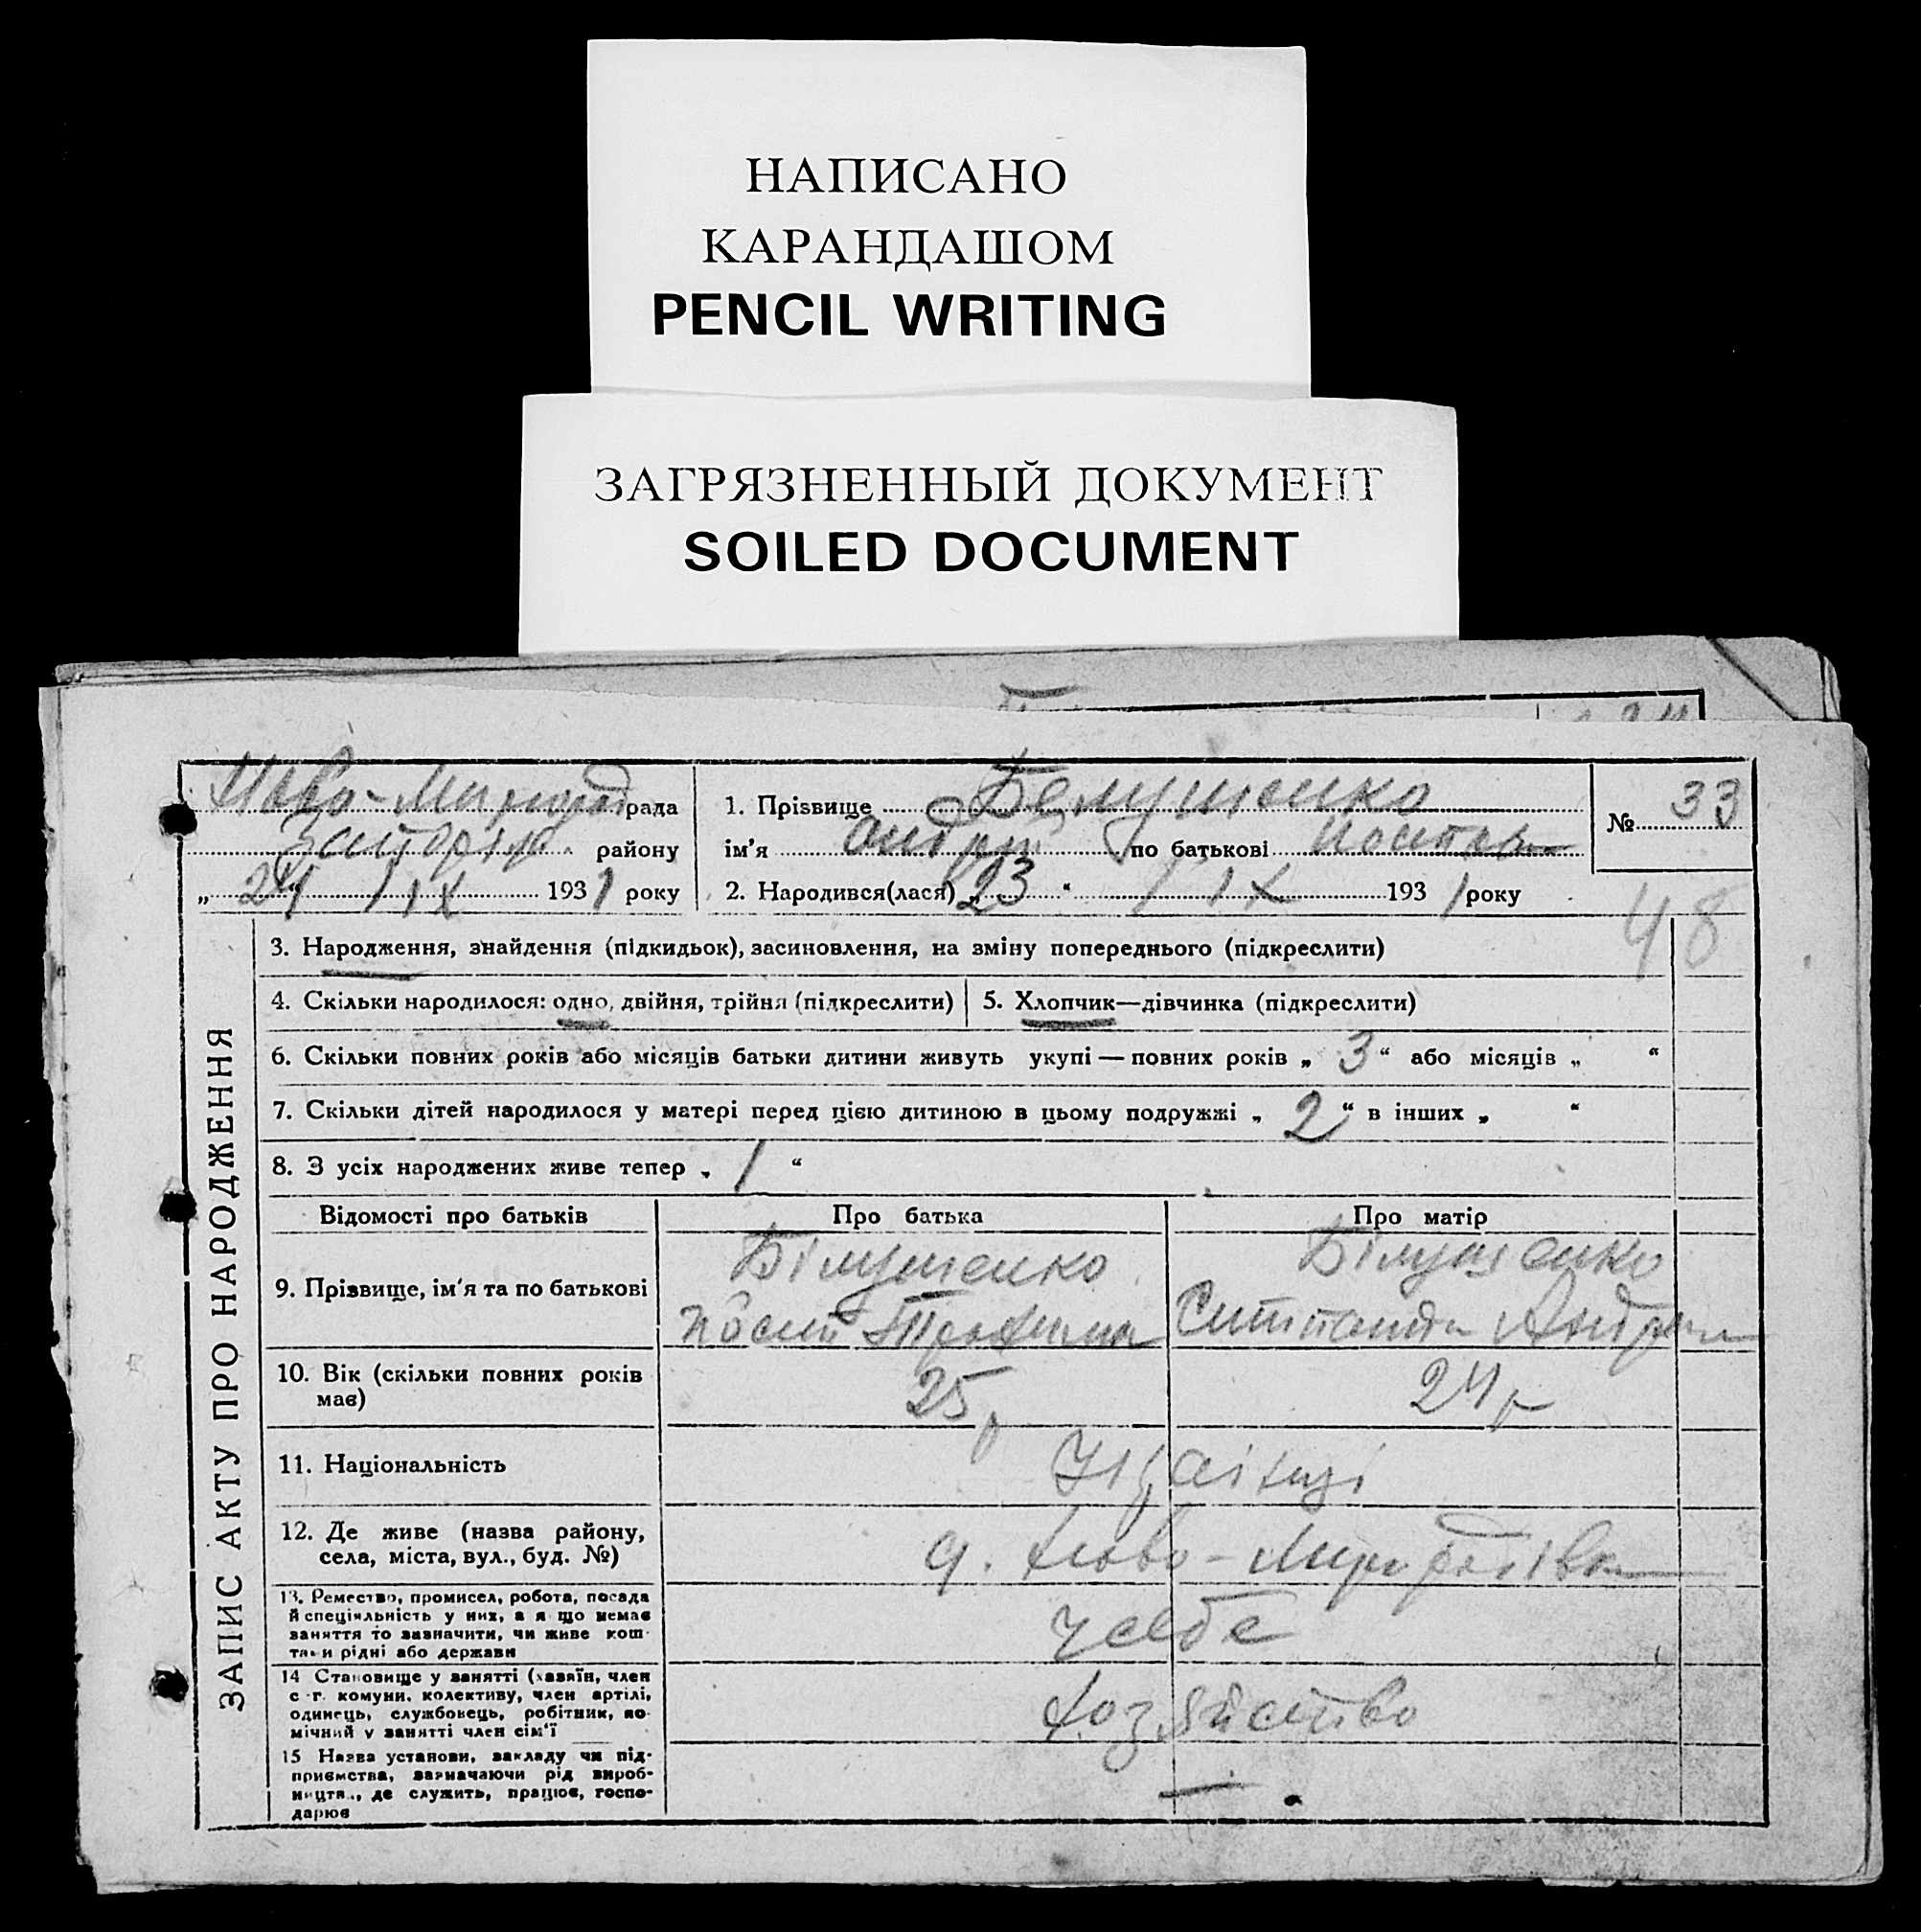 НАПИСАНО
КАРАНДАШОМ
PENCIL WRITING
ЗАГРЯЗНЕННЫЙ ДОКУМЕНТ
SOILED DOCUMENT
рада
району
„ 24 " / IX 1931 року
1. Прізвище Белушенко
ім'я Андрій по батькові
2. Народився(лася) „ 23 “ / IX 1931 року
№ 33
48
ЗАПИС АКТУ ПРО НАРОДЖЕННЯ
3. Народження, знайдення (підкидьок), засиновлення, на зміну попереднього (підкреслити)
4. Скільки народилося: одно, двійня, трійня (підкреслити)
5. Хлопчик—дівчинка (підкреслити)
6. Скільки повних років або місяців батьки дитини живуть укупі — повних років „ 3 “ або місяців „ “
7. Скільки дітей народилося у матері перед цією дитиною в цьому подружжі „ 2 “ в інших „ “
8. З усіх народжених живе тепер „ 1 “
Відомості про батьків
Про батька
Про матір
9. Прізвище, ім'я та по батькові
Білушенко
Білушенко
10. Вік (скільки повних років має)
25 р
24 р
11. Національність
Українці
12. Де живе (назва району, села, міста, вул., буд. №)
13. Ремество, промисел, робота, посада
й спеціяльність у них, а я що немає
заняття то зазначити, чи живе кош
та и рідні або держави
у себе
14 Становище у занятті (хазяїн, член
с.-г. комуни, колективу, член артілі,
одинець, службовець, робітник, по-
мічний у занятті член сім'ї
хозяйство
15 Назва установи, закладу чи під-
приємства, зазначаючи рід вироб-
ництв., де служить, працює, госпо-
дарює
—